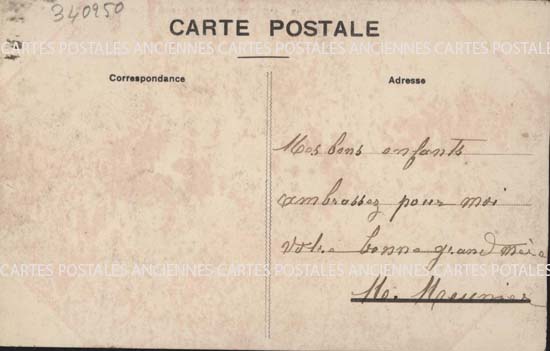 340950
CARTE POSTALE
CARTES POSTALES ANCIENNES CARTES POSTALES ANCIENNES CARTES POSTALES
Correspondance
Adresse
Mes bons enfants
ambrassez pour moi
votre bonne grand mère
CARTES POSTALES ANCIENNES CARTES POSTALES ANCIENNES CARTES POSTALES
M. Meunier